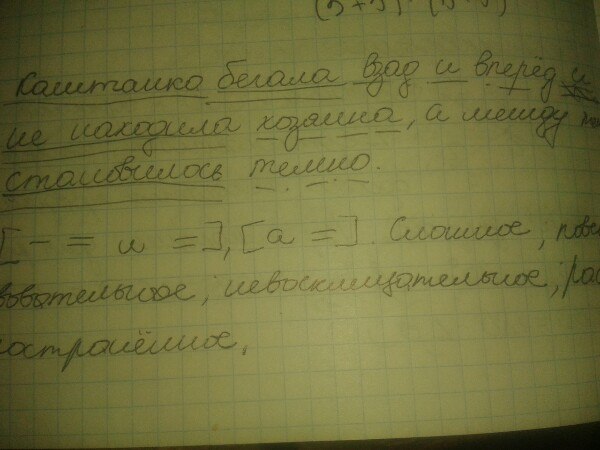 Каштанка бегала взад и вперёд и
не находила хозяина, а между
становилось темно.
[ - = и = ], [ а = ]. Сложное, повес
вовательное, невосклицательное, рас
остранённое.